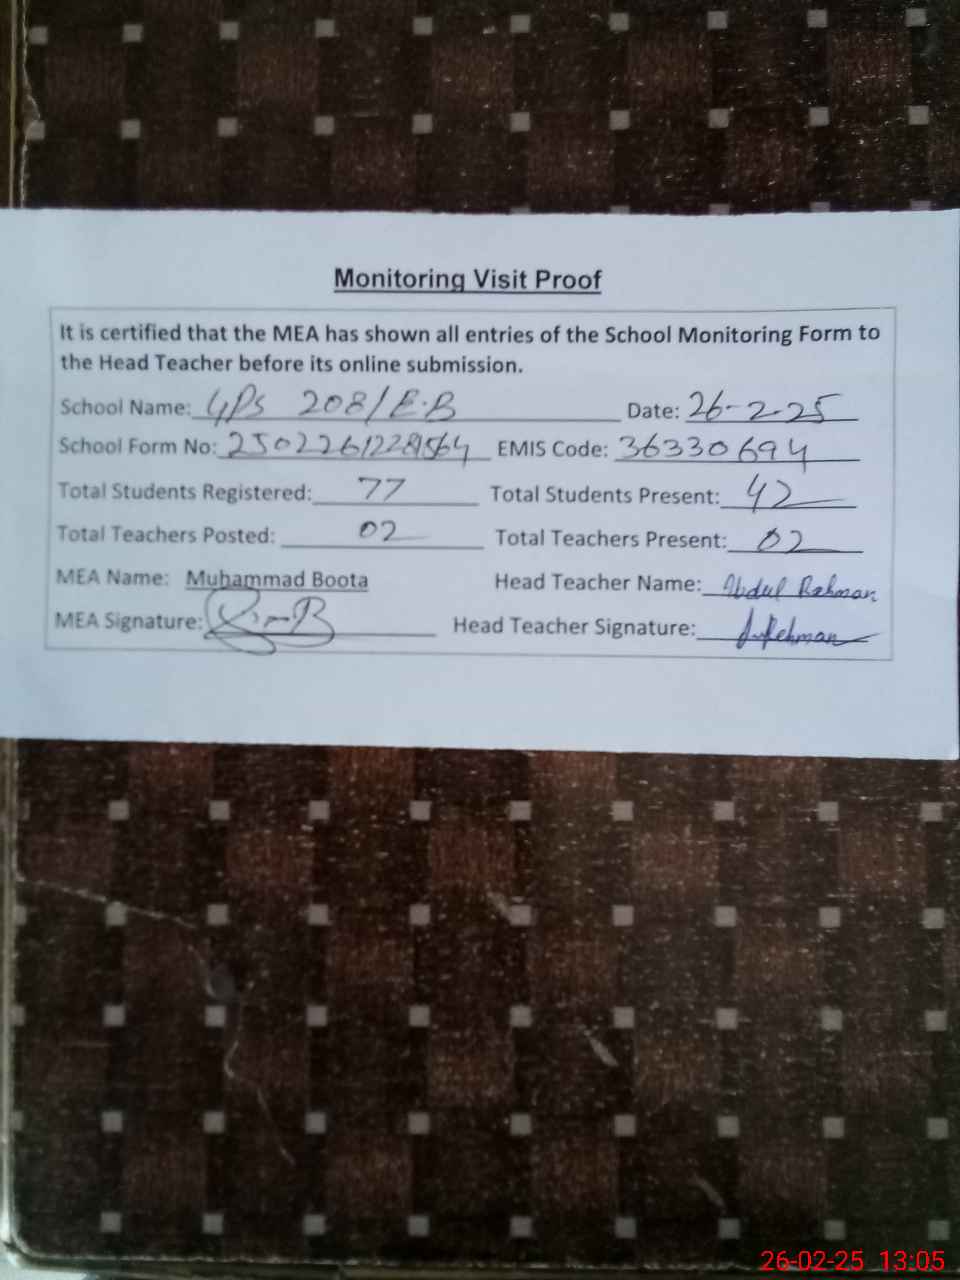 Monitoring Visit Proof
It is certified that the MEA has shown all entries of the School Monitoring Form to
the Head Teacher before its online submission.
School Name: GPS 208/E.B Date: 26-2-25
School Form No: EMIS Code: 36330694
Total Students Registered: 77 Total Students Present: 42
Total Teachers Posted: 02 Total Teachers Present: 02
MEA Name: Muhammad Boota Head Teacher Name: Abdul Rahman
MEA Signature: Head Teacher Signature:
26-02-25 13:05